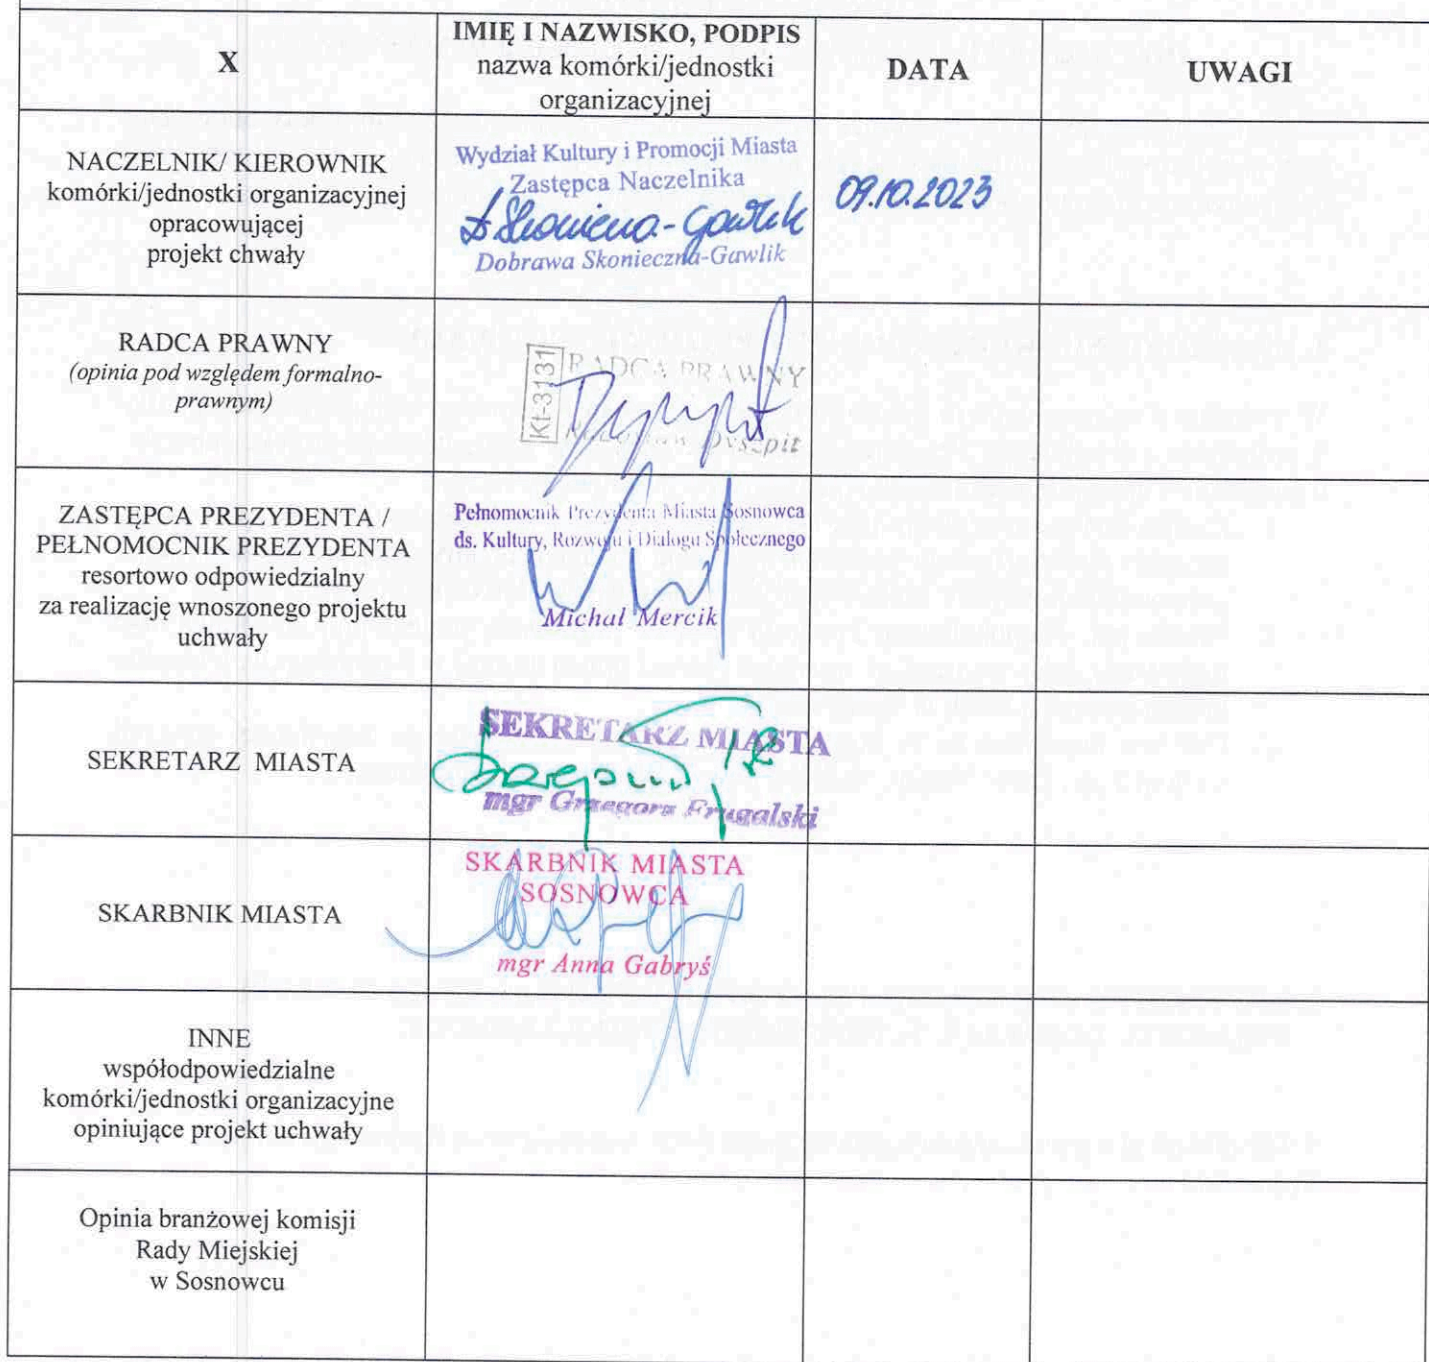 X
IMIĘ I NAZWISKO, PODPIS
nazwa komórki/jednostki
organizacyjnej
DATA
UWAGI
NACZELNIK/ KIEROWNIK
komórki/jednostki organizacyjnej
opracowującej
projekt chwały
Wydział Kultury i Promocji Miasta
Zastępca Naczelnika
D Skonieczna-Gawlik
Dobrawa Skonieczna-Gawlik
09.10.2023
RADCA PRAWNY
(opinia pod względem formalno-
prawnym)
Kt-3131
RADCA PRAWNY
ZASTĘPCA PREZYDENTA /
PEŁNOMOCNIK PREZYDENTA
resortowo odpowiedzialny
za realizację wnoszonego projektu
uchwały
Pełnomocnik Prezydenta Miasta Sosnowca
ds. Kultury, Rozwoju i Dialogu Społecznego
Michał Mercik
SEKRETARZ MIASTA
SEKRETARZ MIASTA
mgr Grzegorz Frugalski
SKARBNIK MIASTA
SKARBNIK MIASTA
SOSNOWCA
mgr Anna Gabryś
INNE
współodpowiedzialne
komórki/jednostki organizacyjne
opiniujące projekt uchwały
Opinia branżowej komisji
Rady Miejskiej
w Sosnowcu